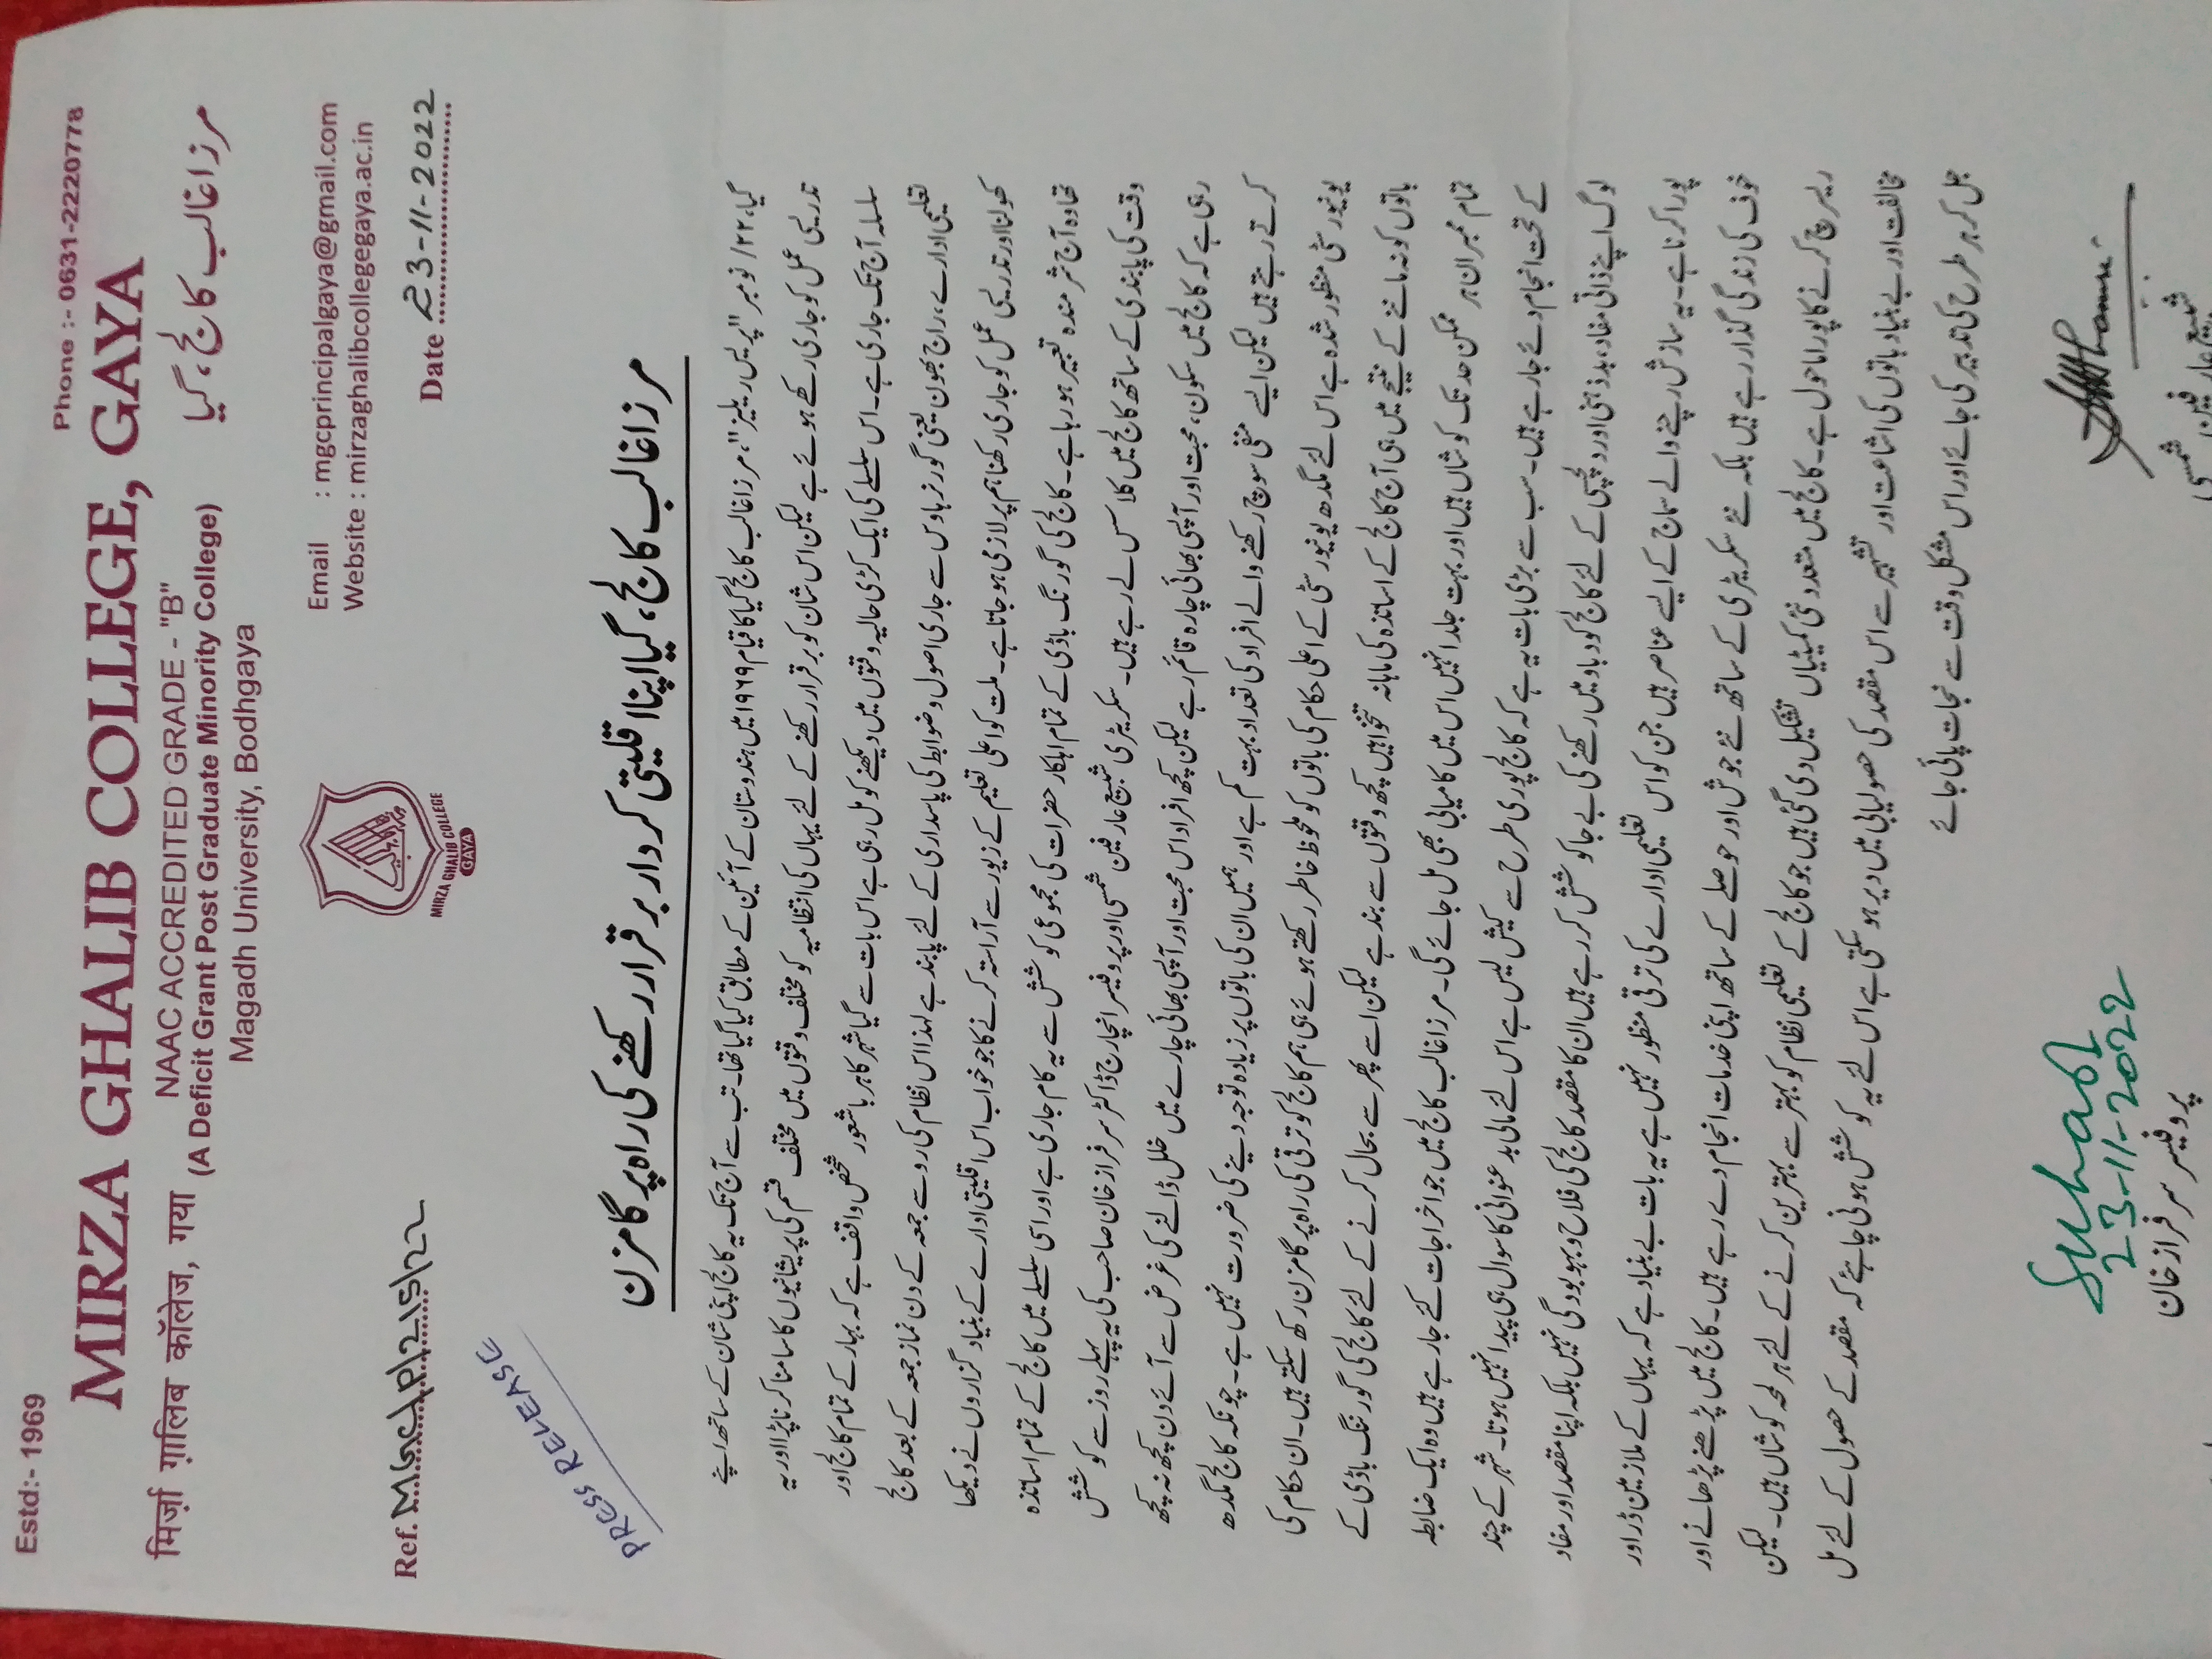 Estd:- 1969
Phone :- 0631-2220778
MIRZA GHALIB COLLEGE, GAYA
मिर्ज़ा ग़ालिब कॉलेज, गया
NAAC ACCREDITED GRADE - "B"
(A Deficit Grant Post Graduate Minority College)
مرزا غالب کالج، گیا
Magadh University, Bodhgaya
Email : mgcprincipalgaya@gmail.com
Website : mirzaghalibcollegegaya.ac.in
MIRZA GHALIB COLLEGE
GAYA
Ref. MGC/P/215/22
Date 23-11-2022
PRESS RELEASE
مرزا غالب کالج، گیا اپنا اقلیتی کردار برقرار رکھنے کی راہ پر گامزن
گیا، ۲۲/ نومبر "پریس ریلیز"، مرزا غالب کالج گیا کا قیام ۱۹۶۹ میں ہندوستان کے آئین کے مطابق کیا گیا تھا۔ تب سے آج تک یہ کالج اپنی شان کے ساتھ اپنے
تدریسی عمل کو جاری رکھے ہوئے ہے لیکن اس شان کو برقرار رکھنے کے لئے یہاں کی انتظامیہ کو مختلف وقتوں میں مختلف قسم کی پریشانیوں کا سامنا کرنا پڑا اور یہ
سلسلہ آج تک جاری ہے۔ اس سلسلے کی ایک کڑی حالیہ وقتوں میں دیکھنے کو مل رہی ہے اس بات سے گیا شہر کا ہر باشعور شخص واقف ہے کہ بہار کے تمام کالج اور
تعلیمی ادارے، راج بھون یعنی گورنر ہاوس سے جاری اصول و ضوابط کی پاسداری کے لئے پابند ہے لہذا اس نظام کی رو سے جمعہ کے دن نماز جمعہ کے بعد کالج
کھولنا اور تدریسی عمل کو جاری رکھنا ہم پر لازمی ہو جاتا ہے۔ ملت کو اعلی تعلیم کے زیور سے آراستہ کرنے کا جو خواب اس اقلیتی ادارے کے بنیاد گزاروں نے دیکھا
تھا وہ آج شرمندہ تعبیر ہو رہا ہے۔ کالج کی گورنگ باڈی کے تمام اہلکار حضرات کی مجموعی کوشش سے یہ کام جاری ہے اور اسی سلسلے میں کالج کے تمام اساتذہ
وقت کی پابندی کے ساتھ کالج میں کلاسس لے رہے ہیں۔ سکریٹری شبیع عارفین شمسی اور پروفیسر انچارج ڈاکٹر سرفراز خان صاحب کی یہ پہلے روز سے کوشش
رہی ہے کہ کالج میں سکون، محبت اور آپسی بھائی چارہ قائم رہے لیکن کچھ افراد اس محبت اور آپسی بھائی چارے میں خلل ڈالنے کی غرض سے آئے دن کچھ نہ کچھ
کرتے رہتے ہیں لیکن ایسے منفی سوچ رکھنے والے افراد کی تعداد بہت کم ہے اور ہمیں ان کی باتوں پر زیادہ توجہ دینے کی ضرورت نہیں ہے۔ چونکہ کالج مگدھ
یونیورسٹی منظور شدہ ہے اس لئے مگدھ یونیورسٹی کے اعلی حکام کی باتوں کو ملحوظ خاطر رکھتے ہوئے ہی ہم کالج کو ترقی کی راہ پر گامزن رکھ سکتے ہیں۔ ان حکام کی
باتوں کو نہ ماننے کے نتیجے میں ہی آج کالج کے اساتذہ کی ماہانہ تنخواہیں کچھ وقتوں سے بند ہے لیکن اسے پھر سے بحال کرنے کے لئے کالج کی گورننگ باڈی کے
تمام ممبران ہر ممکن حد تک کوشاں ہیں اور بہت جلد انہیں اس میں کامیابی بھی مل جائے گی۔ مرزا غالب کالج میں جو اخراجات کئے جا رہے ہیں وہ ایک ضابطہ
کے تحت انجام دئے جا رہے ہیں۔ سب سے بڑی بات یہ ہے کہ کالج پوری طرح سے کیش لیس ہے اس لئے مالی بدعنوانی کا سوال ہی پیدا نہیں ہوتا۔ شہر کے چند
لوگ اپنے ذاتی مفاد، بدذہنی اور دلچسپی کے لئے کالج کو دباو میں رکھنے کی بے جا کوشش کر رہے ہیں ان کا مقصد کالج کی فلاح و بہوبودگی نہیں بلکہ اپنا مقصد اور مفاد
پورا کرنا ہے۔ یہ سازش رچنے والے سماج کے ایسے عناصر ہیں جن کو اس تعلیمی ادارے کی ترقی منظور نہیں ہے یہ بات بے بنیاد ہے کہ یہاں کے ملازمین ڈر اور
خوف کی زندگی گذار رہے ہیں بلکہ نئے سکریٹری کے ساتھ نئے جوش اور حوصلے کے ساتھ اپنی خدمات انجام دے رہے ہیں۔ کالج میں پڑھنے پڑھانے اور
ریسرچ کرنے کا پورا ماحول ہے۔ کالج میں متعدد نئی کمیٹیاں تشکیل دی گئی ہیں جو کالج کے تعلیمی نظام کو بہتر سے بہترین کرنے کے لئے ہر لمحہ کوشاں ہیں۔ لیکن
مخالفت اور بے بنیاد باتوں کی اشاعت اور تشہیر سے اس مقصد کی حصولیابی میں دیر ہو سکتی ہے اس لئے یہ کوشش ہونی چاہئے کہ مقصد کے حصول کے لئے مل
جل کر ہر طرح کی تدبیر کی جائے اور اس مشکل وقت سے نجات پائی جائے
23-11-2022
پروفیسر سرفراز خان
شبیع عارفین شمسی